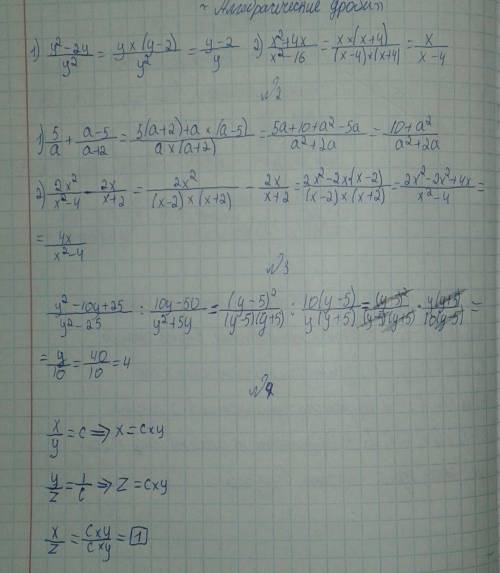 "Алгебраические дроби"
1) (y²-2y)/y² = (y×(y-2))/y² = (y-2)/y 2) (x²+4x)/(x²-16) = (x×(x+4))/((x-4)×(x+4)) = x/(x-4)
№2
1) 5/a + (a-5)/(a+2) = (5(a+2)+a×(a-5))/(a×(a+2)) = (5a+10+a²-5a)/(a²+2a) = (10+a²)/(a²+2a)
2) 2x²/(x²-4) - 2x/(x+2) = 2x²/((x-2)×(x+2)) - 2x/(x+2) = (2x²-2x×(x-2))/((x-2)×(x+2)) = (2x²-2x²+4x)/(x²-4) =
= 4x/(x²-4)
№3
(y²-10y+25)/(y²-25) : (10y-50)/(y²+5y) = (y-5)²/((y-5)(y+5)) : 10(y-5)/(y(y+5)) = (y-5)²/((y-5)(y+5)) · y(y+5)/(10(y-5)) =
= y/10 = 40/10 = 4
№4
x/y = c ⇒ x = c×y
y/z = 1/c ⇒ z = c×y
x/z = c×y/c×y = 1